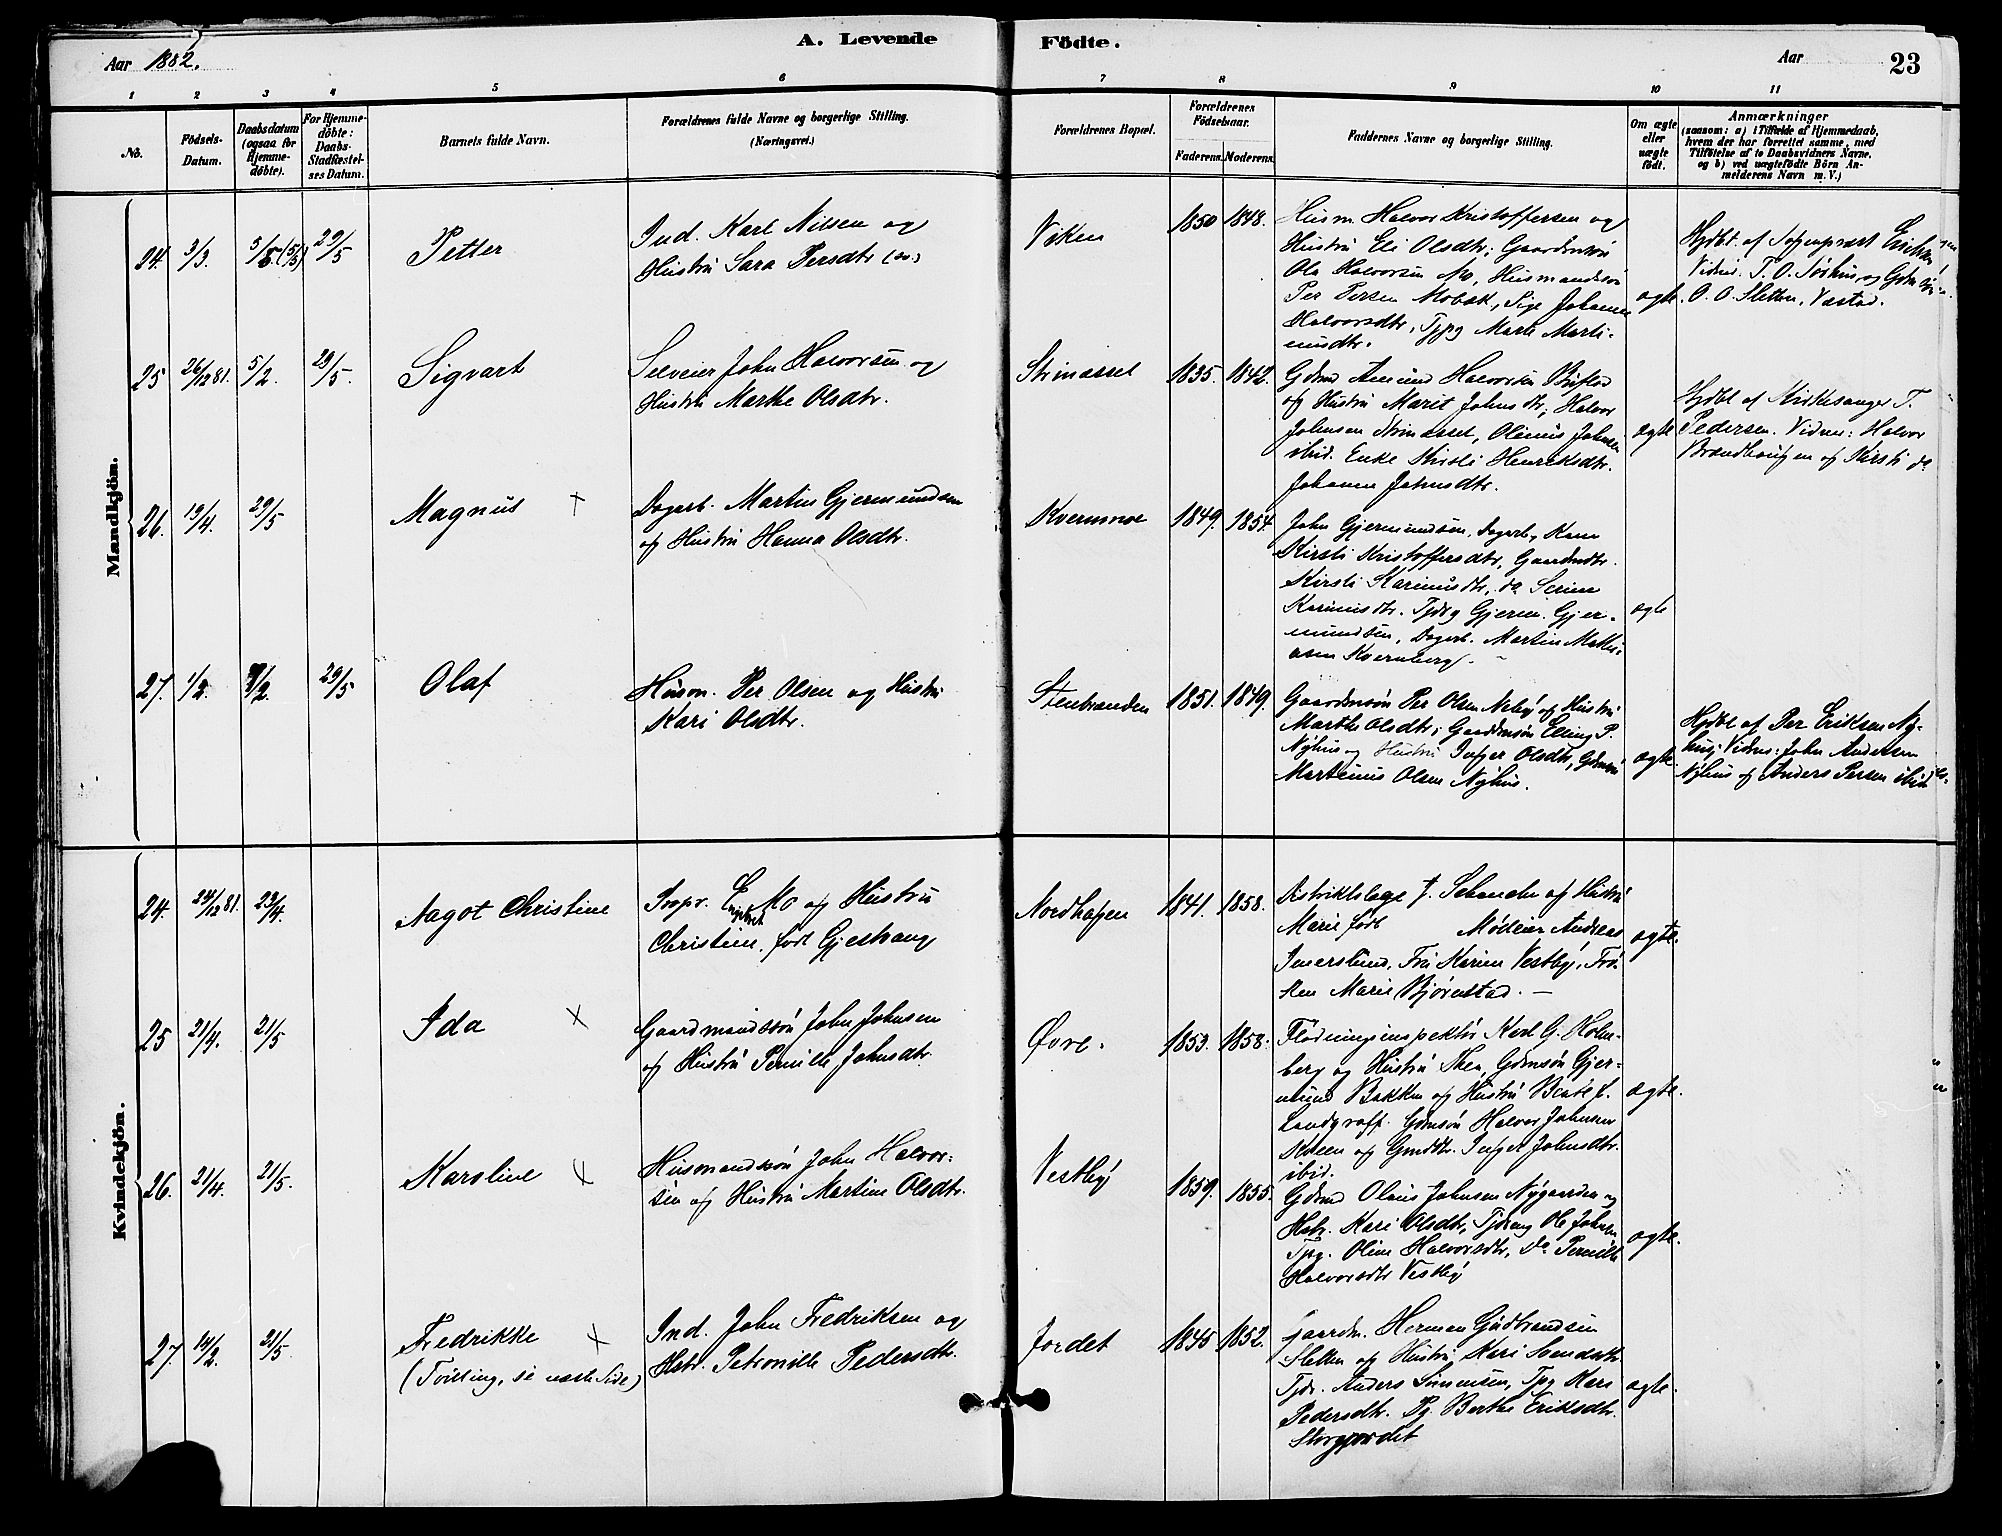 A. Levende Födte.
Aar 1882.
Aar
23
1 2 3 4 5 6 7 8 9 10 11
No.
Födsels-
Datum.
Daabsdatum
(ogsaa for
Hjemme-
döbte).
For Hjemme-
döbte:
Daabs-
Stadfæstel-
ses Datum.
Barnets fulde Navn.
Forældrenes fulde Navne og borgerlige Stilling.
(Næringsvei.)
Forældrenes Bopæl.
Forældrenes
Födselsaar.
Faderens. Moderens.
Faddernes Navne og borgerlige Stilling.
Om ægte
eller
uægte
födt.
Anmærkninger
(saasom: a) i Tilfælde af Hjemmedaab,
hvem der har forrettet samme, med
Tilföielse af to Daabsvidners Navne,
og b) ved uægtefödte Börn An-
melderens Navn m. V.)
Mandkjön.
24. 3/3. 5/5 (5/3) 29/5
Petter
Ind. Karl Nilsen og
Hustru Sara Persdtr
Viken
1850 1848.
Husm. Halvor Kristoffersen og
Hustru Eli Olsdtr; Gaardmsøn
Ola Halvorsen Mo, Husmandssøn
Per Persen Mobæk, Pige Johanne
Halvorsdtr, Tjpg Marte Marti-
nusdtr.
ægte.
Hjdbt. af Sogneprest Eriksen
Vidner. T. O. Sørhus og Gdmsøn
O. O. Sletten, Vestad.
25 26/12 81. 5/2. 29/5.
Sigvart
Selveier John Halvorsen og
Hustru Marthe Olsdtr.
Strinasset
1835. 1842.
Gdmd Amund Halvorsen
og Hustru Marit Johnsdtr; Halvor
Johnsen Strinasset, Olinus Johnsen
ibid. Enke Kirsti Henriksdtr.
Johanne Johnsdtr.
ægte
Hjdbt af Kirkesanger T.
Pedersen. Vidner: Halvor
Brændhaugen og Kirsti do
26. 19/4. 29/5
Magnus +
Dagarb. Martin Gjermundsen
og Hustru Hanna Olsdtr.
Kvernmoe
1849. 1854.
John Gjermundsen, Dagarb, Kone
Kirsti Kristoffersdtr, Gaardmdtr.
Kirsti Karinusdtr, do Serine
Karinusdtr. Tjdrg Gjerm. Gjer-
mundsen, Dagarb. Martin Mathi-
asen Kvernberg. -
ægte
27. 1/2. 9/2 29/5
Olaf
Husm. Per Olsen og Hustru
Kari Olsdtr.
Stenbranden
1851. 1849.
Gaardmsøn Per Olsen Neby og Hustru
Marthe Olsdtr; Gaardmsøn Elling P.
Nyhus og Hustru Ingjer Olsdtr, Gdmsøn
Martinus Olsen Nyhus.
ægte
Hjdbt af Per Eriksen Ny-
hus; Vidner: John Andersen
Nyhus og Anders Persen ibid
Kvindekjön.
24. 29/12 81. 23/4.
Aagot Christine
Propr. Engebret Mo og Hustru
Christine, født Gjestvang
Nordhagen
1841. 1858.
Distriktslæge J. Schancke og Hustru
Marie født Møkeier Andreas
Imerslund, Fru Karine Vestby, Frø-
ken Marie Bjørnstad. -
ægte.
25 21/4. 21/5
Ida ×
Gaardmandssøn John Johnsen
og Hustru Pernille Johnsdtr.
Øvre.
1853. 1858.
Flødningsinspektør Karl G. Holm-
berg og Hustru Thea, Gdmsøn Gjer-
mund Bakken og Hustru Beate f.
Landgraff. Gdmsøn Halvor Johnsen
Skeen og Gmdtr. Ingjer Johnsdtr.
ibid.
ægte.
26. 21/4. 21/5.
Karoline ×
Husmandssøn John Halvor-
sen og Hustru Martine Olsdtr.
Vestby
1859. 1855.
Gdmd Olaus Johnsen Nygaarden og
Hstr. Kari Olsdtr, Tjdreng Ole Johnsen
Tpg. Oline Halvorsdtr, Do Pernille
Halvorsdtr Vestby
ægte.
27. 14/2. 21/5.
Fredrikke ×
(Tvilling, se næste Side)
Ind. John Fredriksen og
Hstr. Petronille Pedersdtr.
Jordet
1845 1852.
Gaardm. Herman Gudbrandsen
Sletten og Hustru Kari Svendsdtr
Tjdr. Anders Simensen, Tpg Kari
Pedersdtr. Pg. Berthe Eriksdtr.
Storgjordet
ægte.